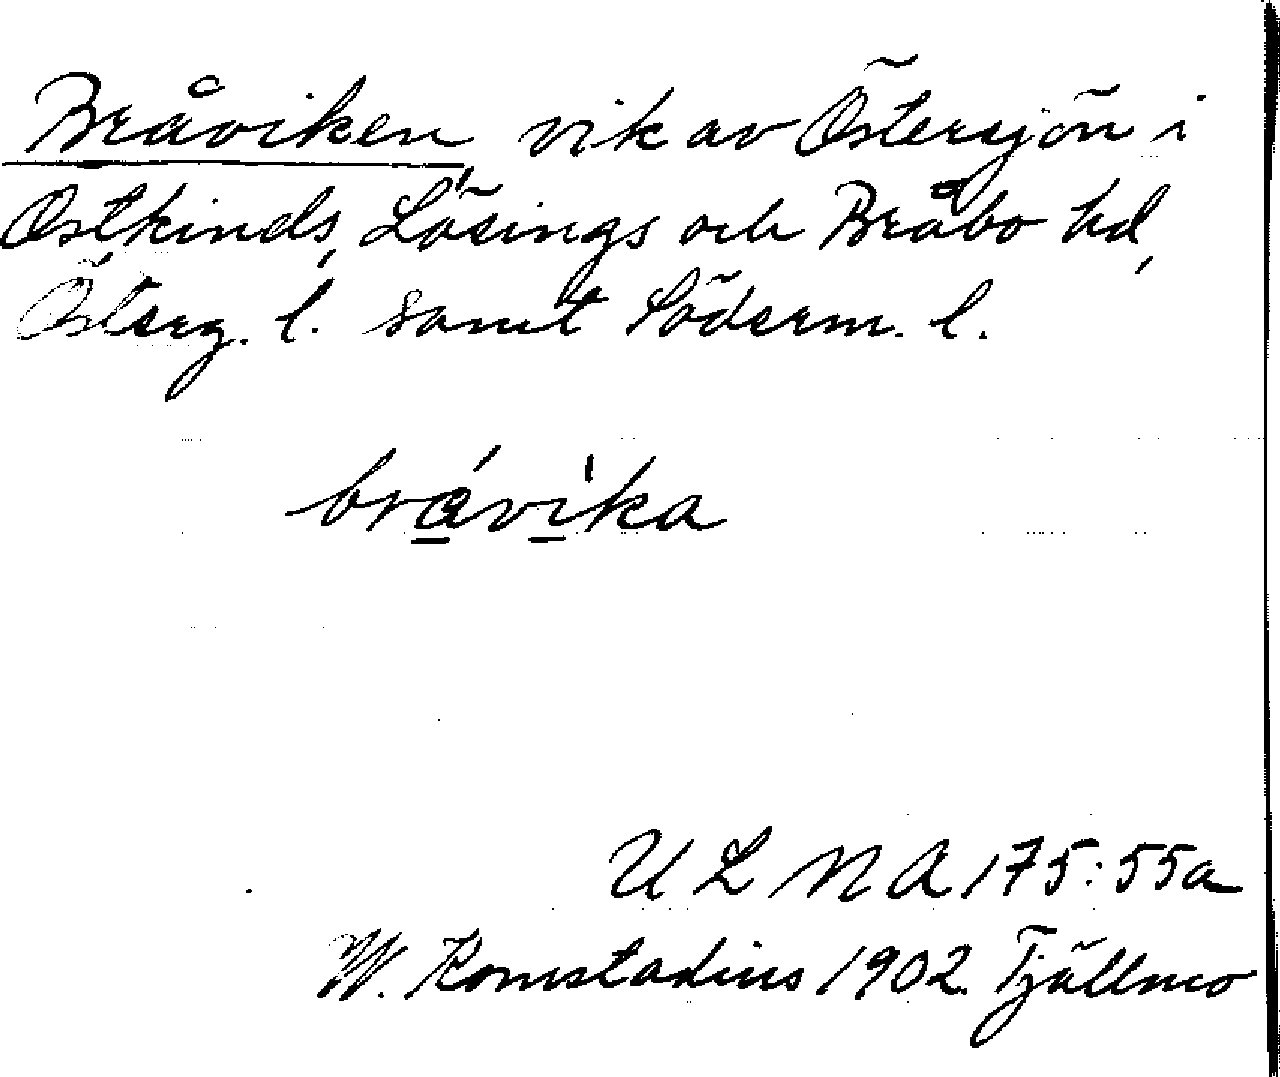 Bråviken, vik av Östersjön i
Östkinds, Lösings och Bråbo hd,
Österg. l. samt Söderm. l.
brávika
U L M A 175:55a
W. Komstadius 1902. Tjällmo